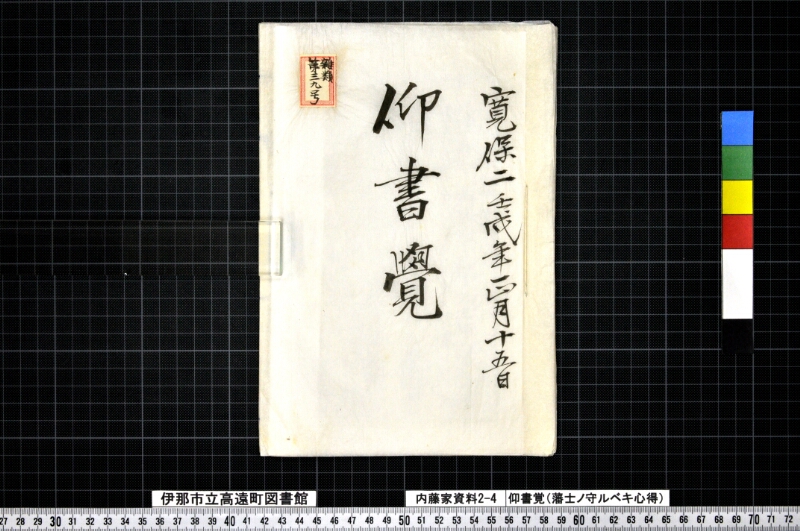 寛保二壬戌年正月十五日
仰書覺
雜類
第三九号
伊那市立高遠町図書館
内藤家資料2-4 仰書覚(藩士ノ守ルベキ心得)
27 28 29 30 31 32 33 34 35 36 37 38 39 40 41 42 43 44 45 46 47 48 49 50 51 52 53 54 55 56 57 58 59 60 61 62 63 64 65 66 67 68 69 70 71 72